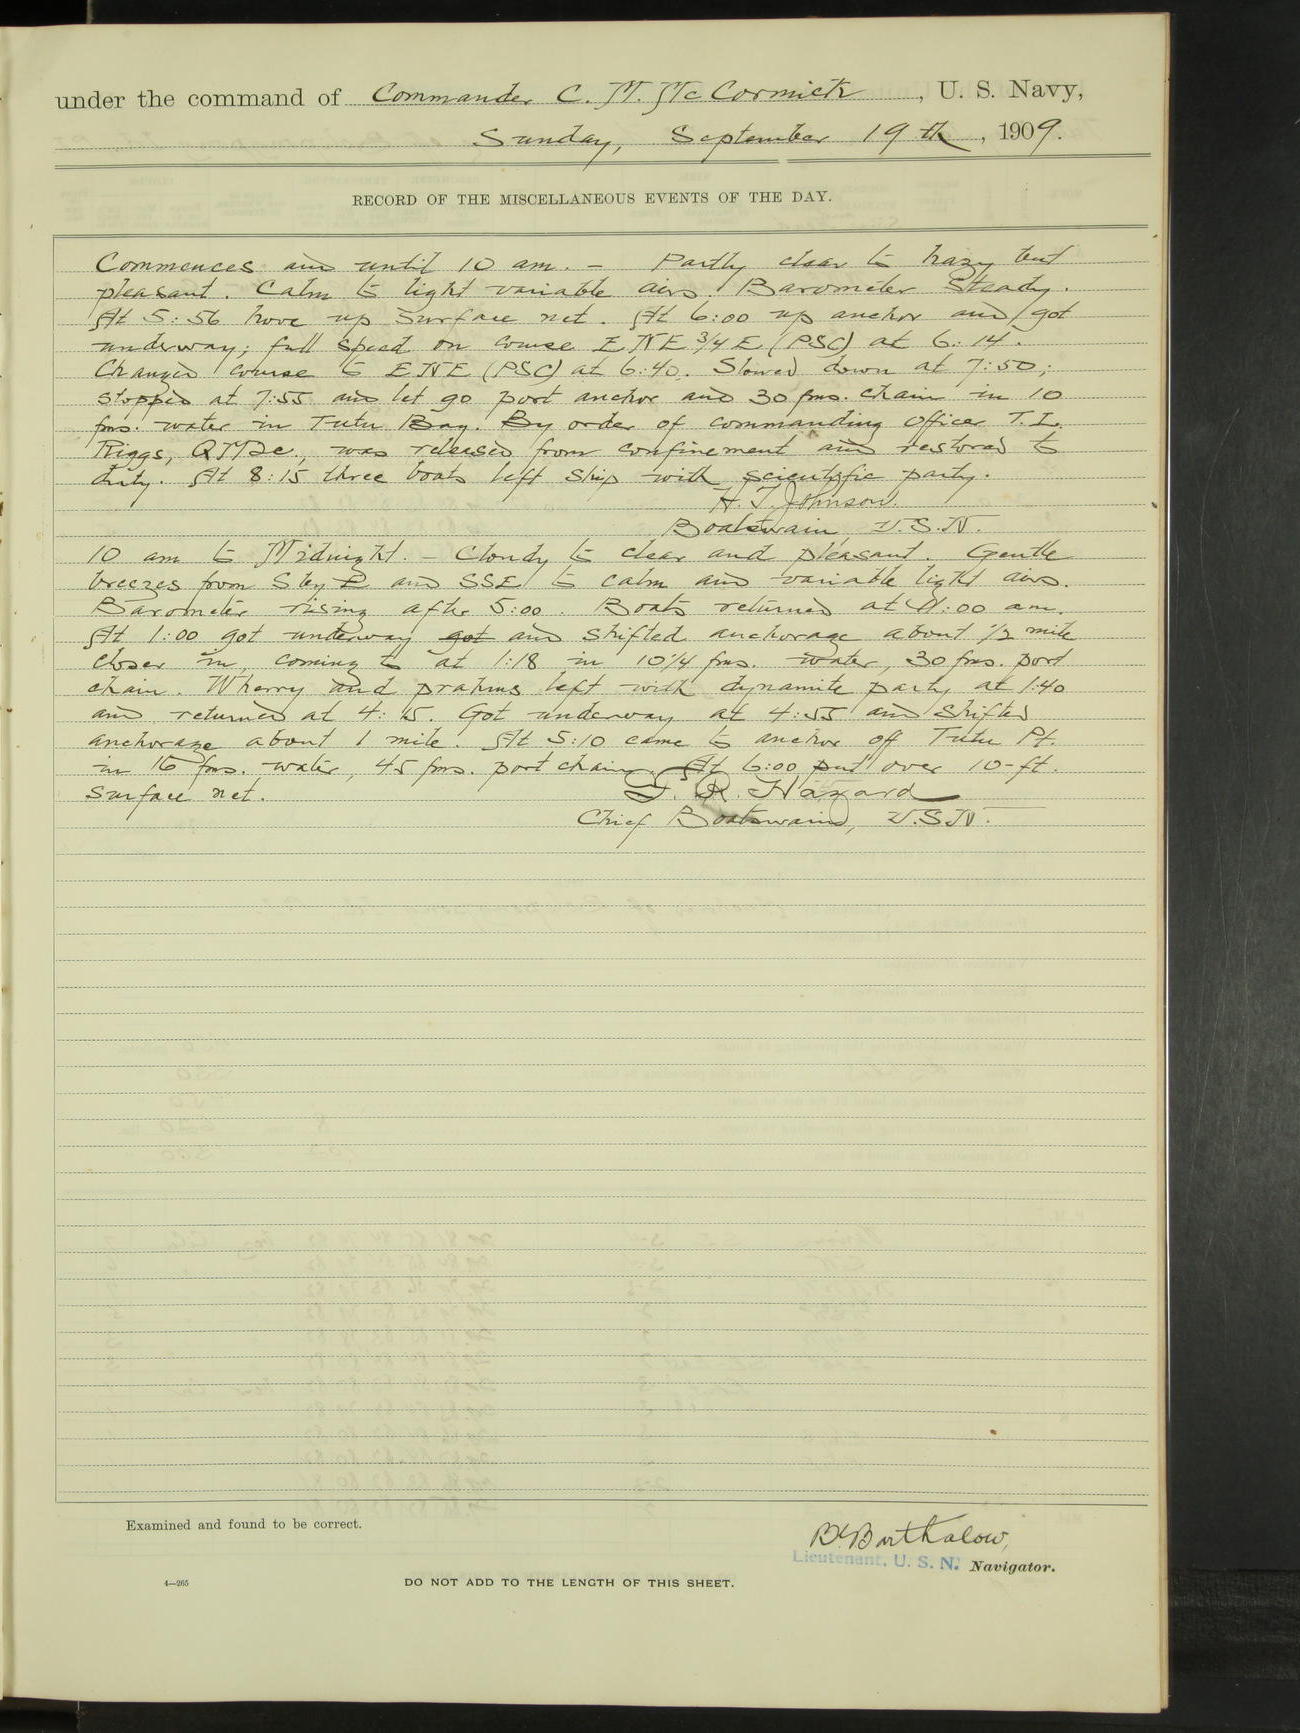 under the command of Commander C. M. McCormick, U. S. Navy,
Sunday, September 19th, 1909.
RECORD OF THE MISCELLANEOUS EVENTS OF THE DAY.
Commences and until 10 am. – Partly clear to hazy but
pleasant. Calm to light variable airs. Barometer Steady.
At 5:56 hove up surface net. At 6:00 up anchor and got
underway; full speed on course ENE 3/4 E (PSC) at 6:14.
Changed course to ENE (PSC) at 6:40. Slowed down at 7:50;
stopped at 7:55 and let go port anchor and 30 fms. chain in 10
fms. water in Tutu Bay. By order of commanding officer T. L.
Riggs, QM2c., was released from confinement and restored to
duty. At 8:15 three boats left ship with scientific party.
H. T. Johnson.
Boatswain, U.S.N.
10 am to Midnight. – Cloudy to clear and pleasant. Gentle
breezes from S by E and SSE to calm and variable light airs.
Barometer rising after 5:00. Boats returned at 11:00 am.
At 1:00 got underway got and shifted anchorage about 1/2 mile
closer in, coming to at 1:18 in 10 1/4 fms. water, 30 fms. port
chain. Wherry and prahms left with dynamite party at 1:40
and returned at 4:15. Got underway at 4:55 and shifted
anchorage about 1 mile. At 5:10 came to anchor off Tutu Pt.
in 16 fms. water, 45 fms. port chain. At 6:00 put over 10-ft.
surface net.
Hazard
Chief Boatswain, U.S.N.
Examined and found to be correct.
Barthalow,
Lieutenant, U. S. N. Navigator.
4—265
DO NOT ADD TO THE LENGTH OF THIS SHEET.